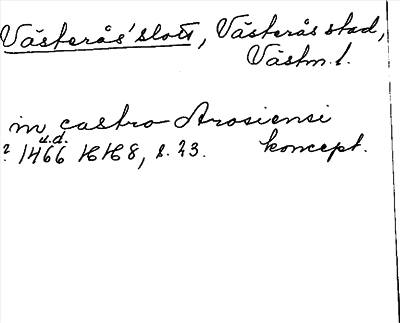 Västerås slott, Västerås stad,
Västm. l.
in castro Arosiensi
u.d.
? 1466 HH 8, s. 23. koncept.